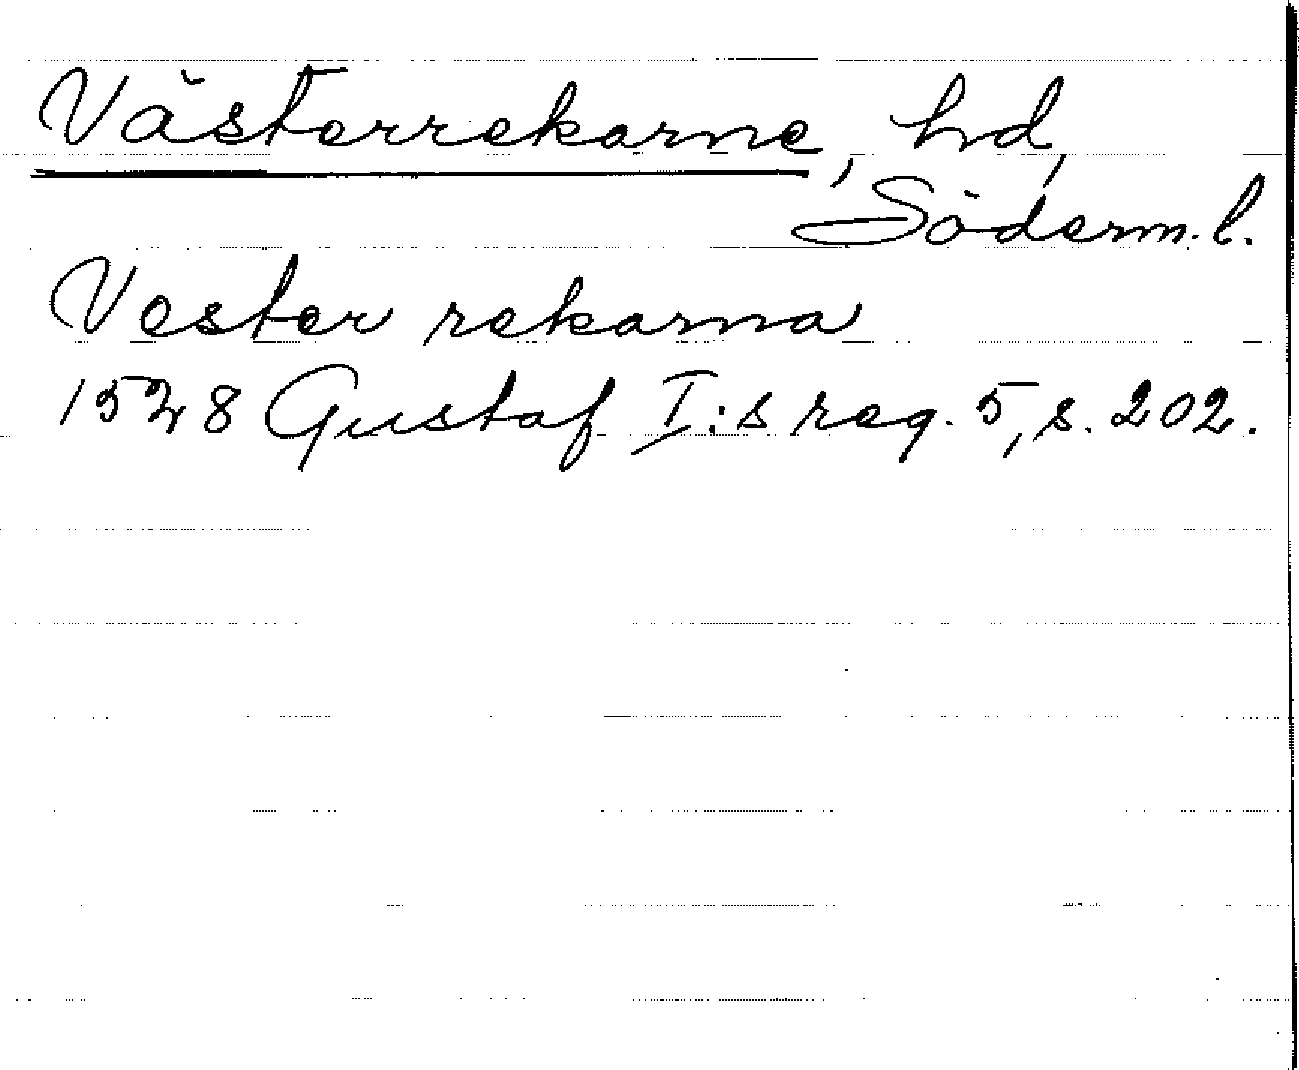 Västerrekarne, hd,
Söderm. l.
Vester rekarna
1528 Gustaf I:s reg. 5, s. 202.